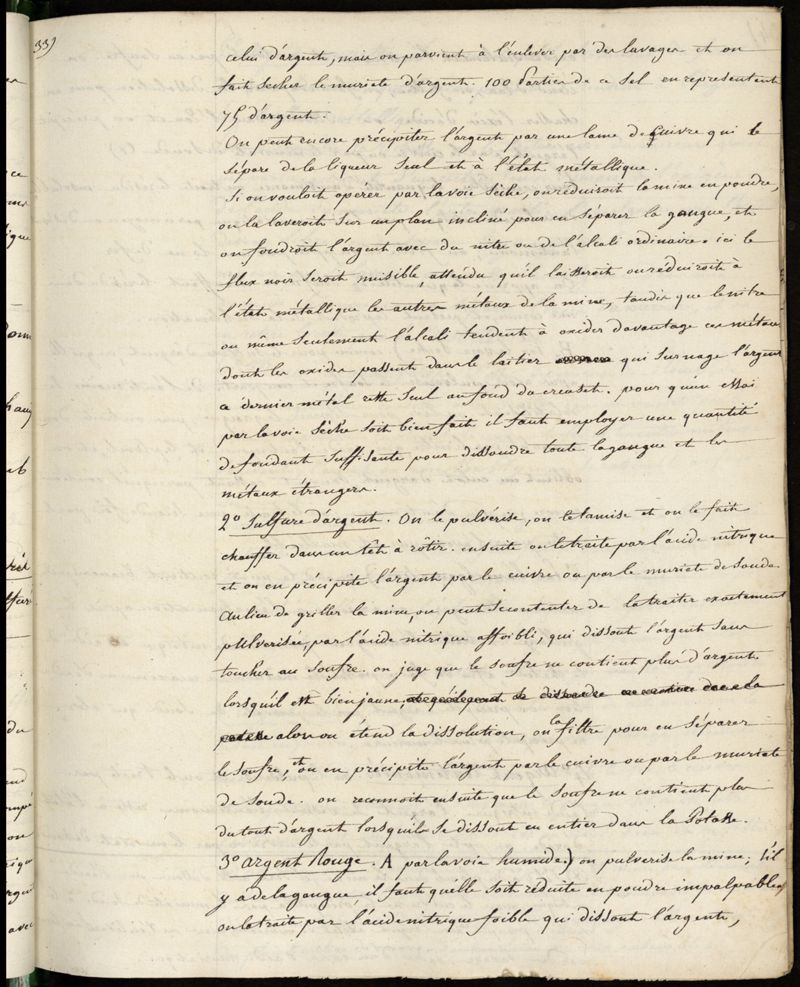 33)
celui d'argent, mais on parvient à l'enlever par des lavages et on
fait sécher le muriate d'argent. 100 Parties de ce Sel en representent
75 d'argent.
On peut encore précipiter l'argent par une lame de Cuivre qui le
sépare de la liqueur Seul et à l'état métallique.
Si on vouloit opérer par la voie Sèche, on réduiroit la mine en poudre,
on la laveroit Sur un plan incliné pour en Séparer la gangue, et
on fondroit l'argent avec du nitre ou de l'alcali ordinaire. ici le
flux noir Seroit nuisible, attendu qu'il laisseroit ou réduiroit à
l'état métallique les autres métaux de la mine, tandis que le nitre
ou même Seulement l'alcali tendent à oxider davantage ces métaux
dont les oxides passent dans le laitier qui Surnage l'argent
ce dernier métal reste Seul au fond du creuset. pour qu'un essai
par la voie Sèche Soit bien fait il faut employer une quantité
de fondant Suffisante pour dissoudre toute la gangue et les
métaux étrangers.
2° Sulfure d'argent. On le pulvérise, on le tamise et on le fait
chauffer dans un têt à rôtir. ensuite on le traite par l'acide nitrique
et on en précipite l'argent par le cuivre ou par le muriate de Soude.
Au lieu de griller la mine, on peut Se contenter de la traiter exactement
pulverisée, par l'acide nitrique affoibli, qui dissout l'argent Sans
toucher au Soufre. on juge que le Soufre ne contient plus d'argent
lorsqu'il est bien jaune,
alors on étend la dissolution, on la filtre pour en Séparer
le Soufre, et on en précipite l'argent par le cuivre ou par le muriate
de Soude. on reconnoit ensuite que le Soufre ne contient plus
du tout d'argent lorsqu'il Se dissout en entier dans la Potasse.
3° argent Rouge. A par la voie humide.) on pulverise la mine; S'il
y a de la gangue, il faut qu'elle soit réduite en poudre impalpable,
on la traite par l'acide nitrique foible qui dissout l'argent,